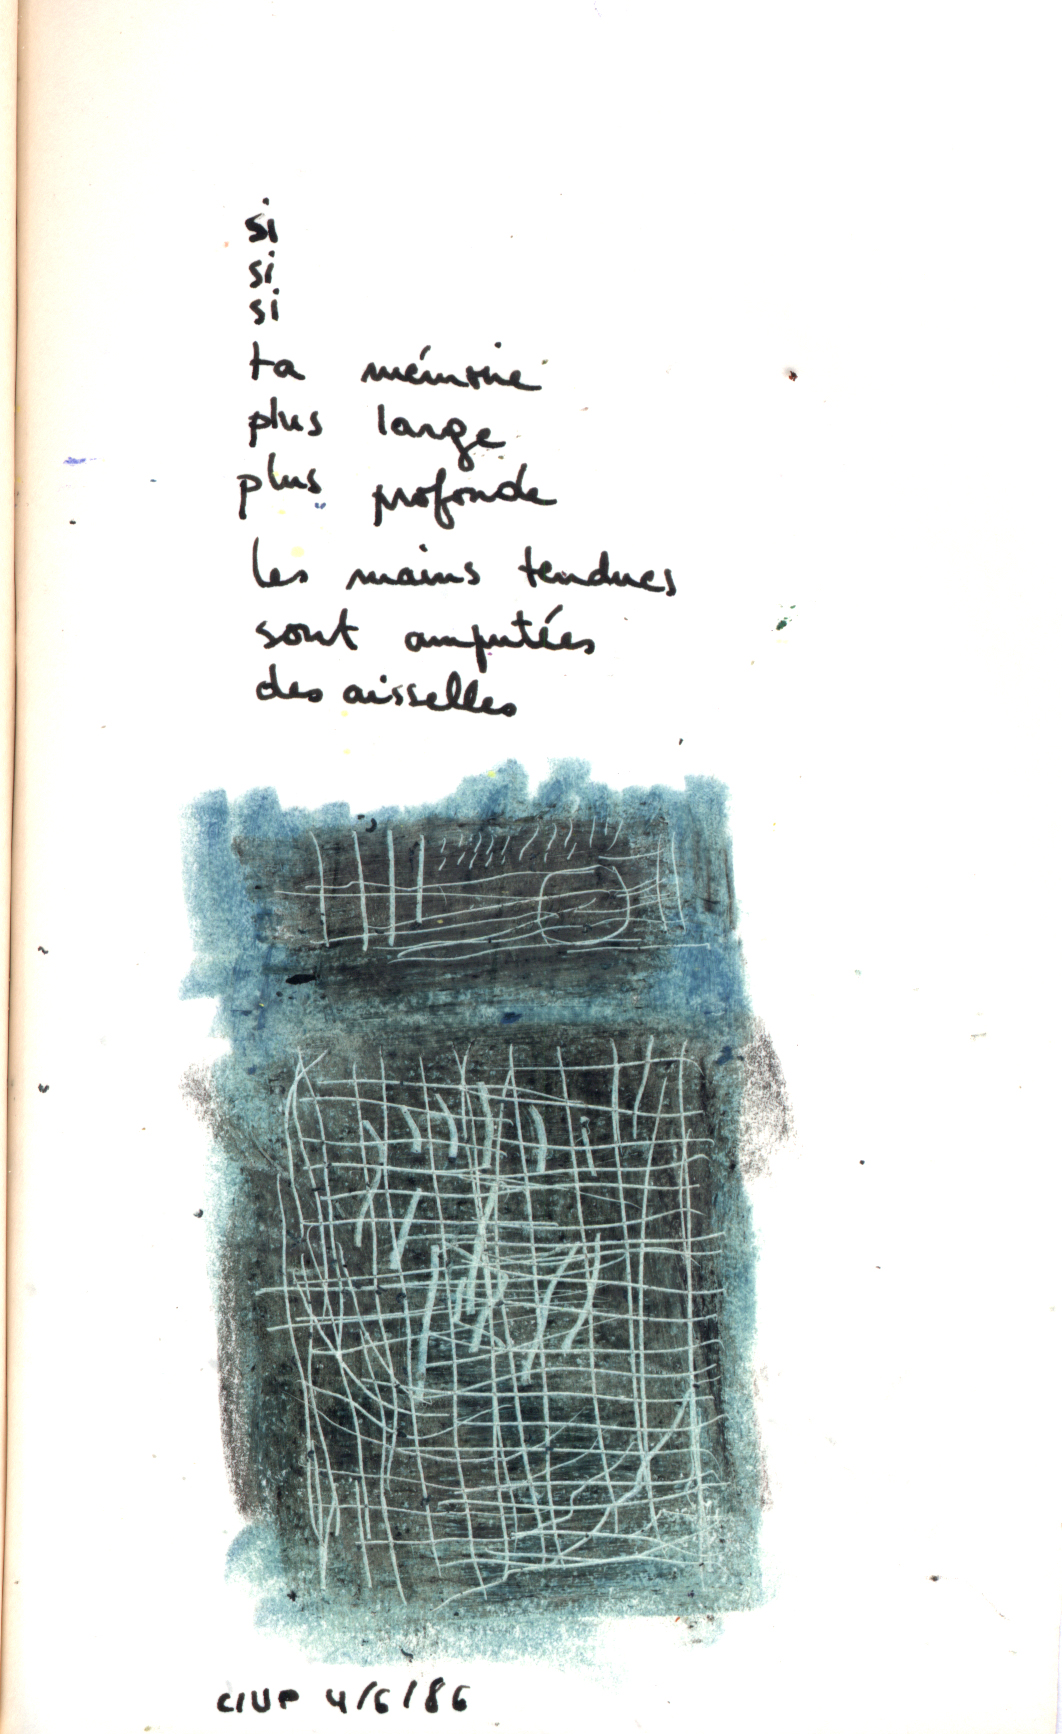 si
si
si
ta mémoire
plus large
plus profonde
les mains tendues
sont amputées
des aisselles
CIUP 4/6/86